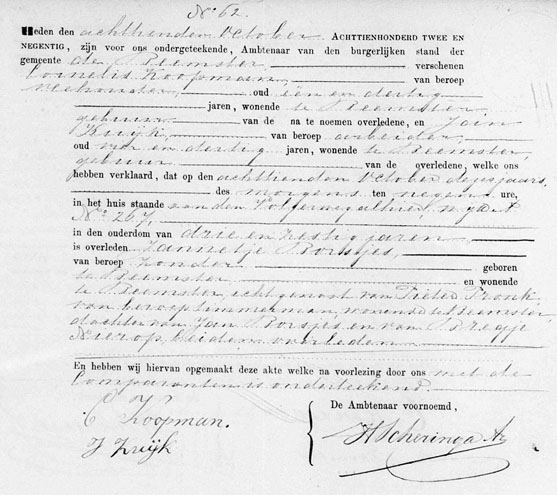 No 62.
Heden den achttienden October ACHTTIENHONDERD TWEE EN
NEGENTIG, zijn voor ons ondergeteekende, Ambtenaar van den burgerlijken stand der
gemeente de Beemster verschenen
Cornelis Koopman, van beroep
veehouder, oud een en dertig
jaren, wonende te Beemster
gebuur van de na te noemen overledene, en Jain
Kuijk, van beroep arbeider,
oud vier en dertig jaren, wonende te Beemster,
gebuur van de overledene, welke ons
hebben verklaard, dat op den achttienden October dezes jaars,
des morgens ten negen ure,
in het huis staande aan den Volgerweg alhier, wijk
No 267,
in den ouderdom van drie en zestig jaren
is overleden Jannetje Borsjes,
van beroep zonder geboren
te Beemster en wonende
te Beemster, echtgenoot van Pieter Pronk,
van beroep timmerman, wonende te Beemster,
dochter van Jan Borsjes en van Bregje
Nierop, beiden overleden.
En hebben wij hiervan opgemaakt deze akte welke na voorlezing door ons met de
comparanten is onderteekend.
De Ambtenaar voornoemd,
C Koopman.
J Kuijk
H Scheringa Az